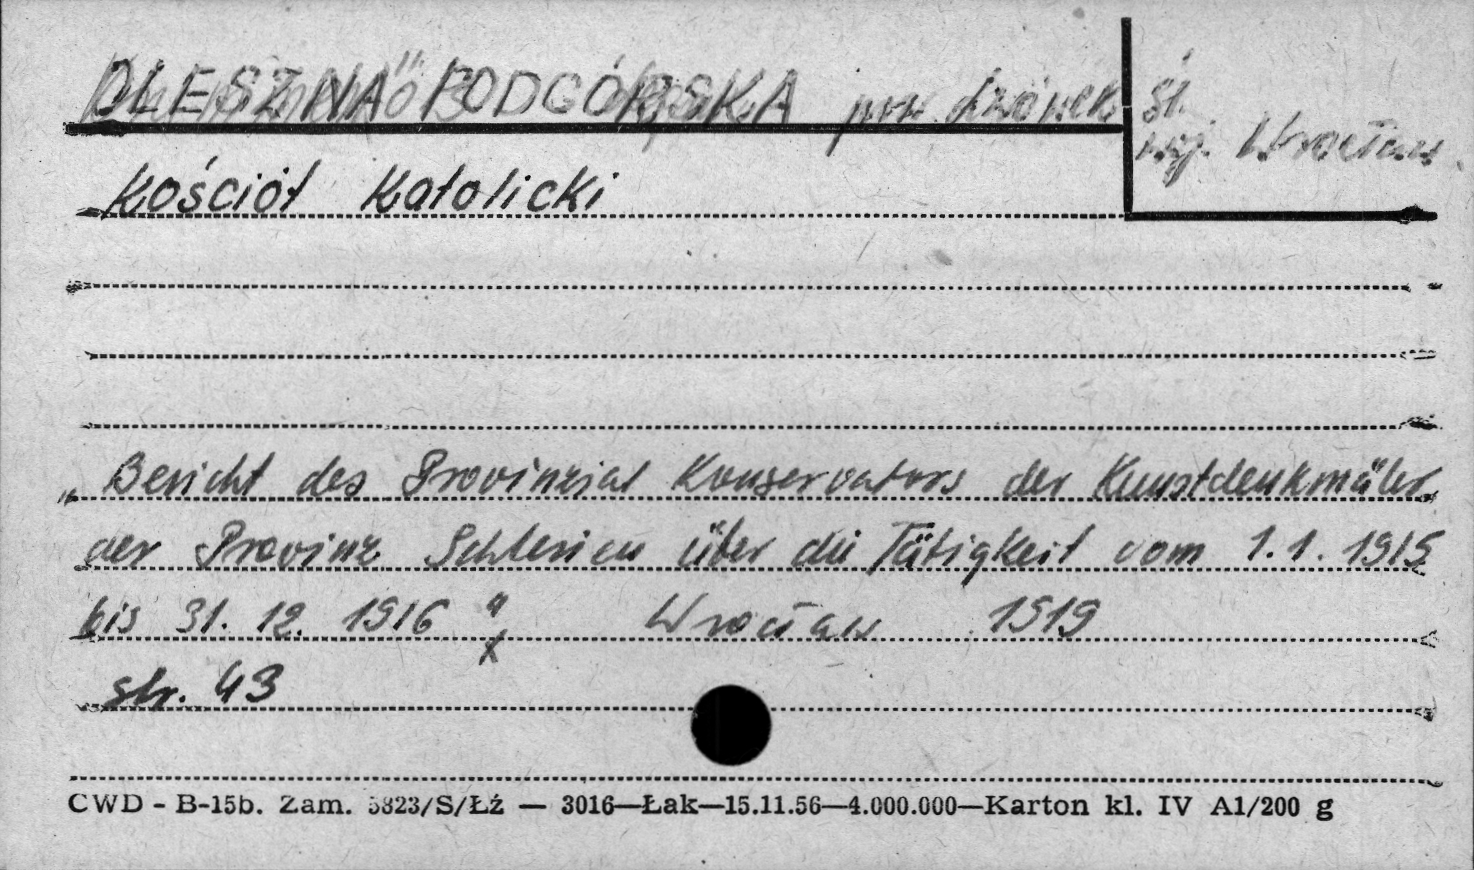 OLESZNA PODGÓRSKA pow. Lwówek Śl.
woj. Wrocław
Kościół Katolicki
„Bericht des Provinzial Konservators der Kunstdenkmäler
der Provinz Schlesien über die Tätigkeit vom 1.1.1915
bis 31.12.1916" Wrocław 1919
str. 43
CWD - B-15b. Zam. 5823/S/Łż — 3016—Łak—15.11.56—4.000.000—Karton kl. IV A1/200 g